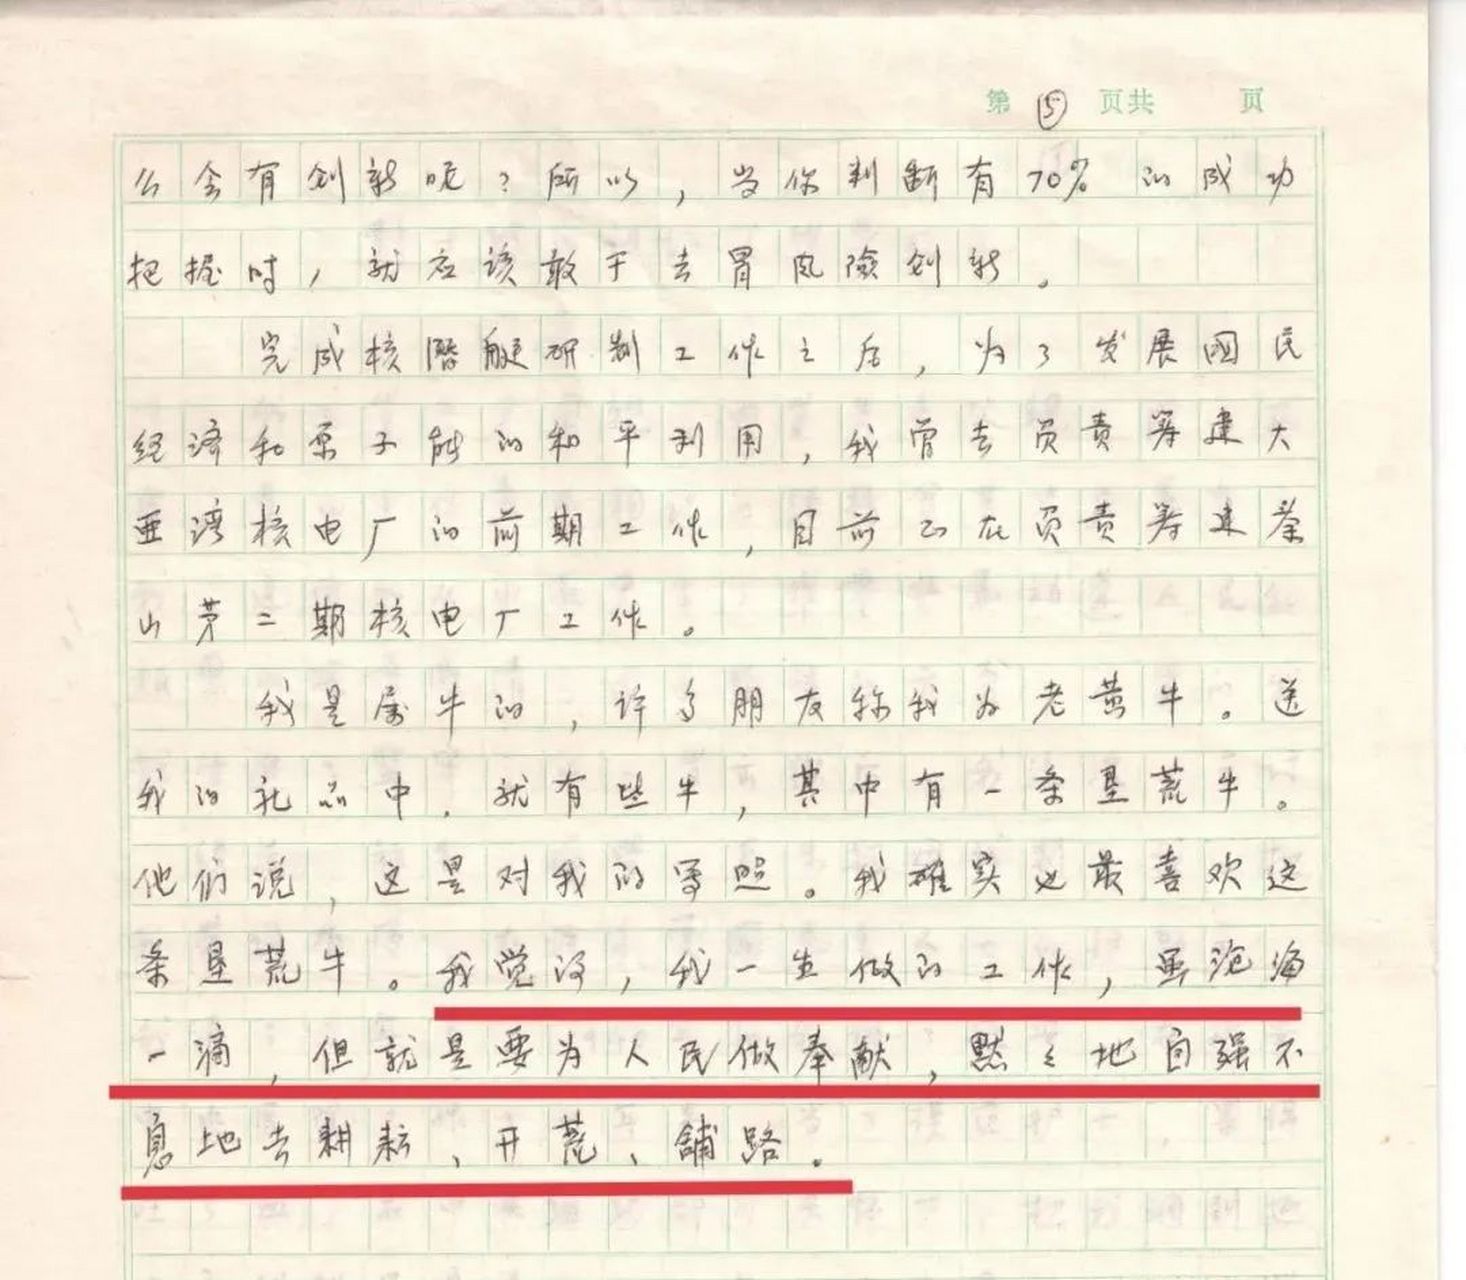 第⑤页共 页
么会有创新呢?所以,当你判断有70%的成功
把握时,就应该敢于去冒风險创新。
完成核潜艇研制工作之后,为了发展國民
经济和原子能的和平利用,我曾去负责筹建大
亚湾核电厂的前期工作,目前正在负责筹建秦
山第二期核电厂工作。
我是属牛的,许多朋友称我为老黄牛。送
我的礼品中,就有些牛,其中有一条垦荒牛。
他们说,这是对我的写照。我確实也最喜欢这
条垦荒牛。我觉得,我一生做的工作,虽沧海
一滴,但就是要为人民做奉献,默々地自强不
息地去耕耘、开荒、舖路。